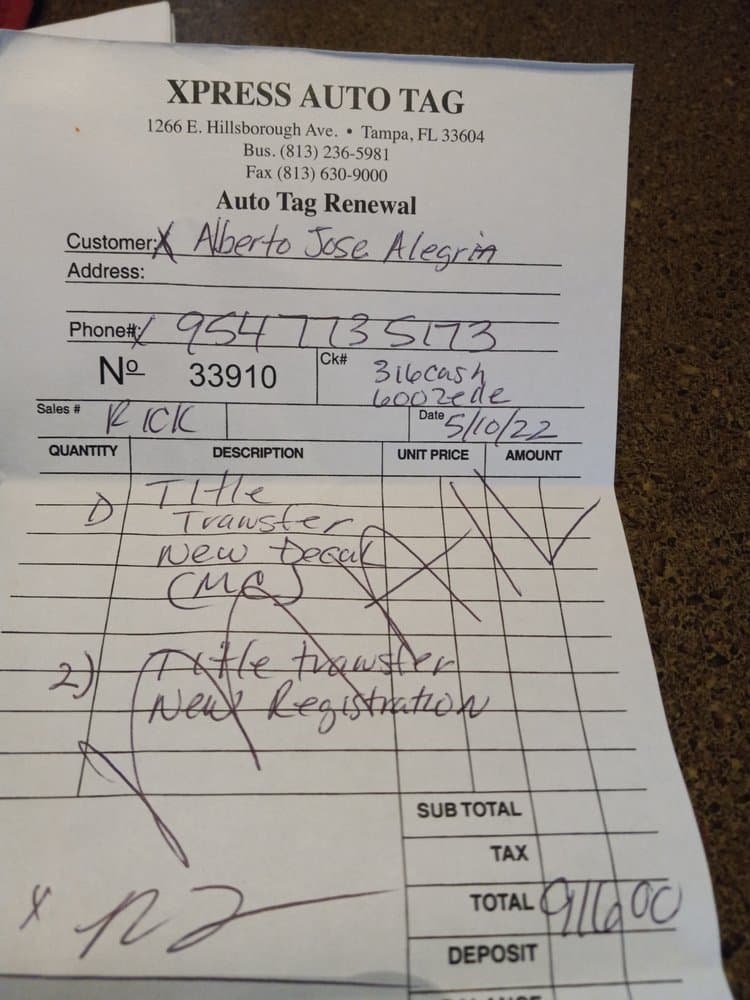 XPRESS AUTO TAG
1266 E. Hillsborough Ave. • Tampa, FL 33604
Bus. (813) 236-5981
Fax (813) 630-9000
Auto Tag Renewal
Customer: X Alberto Jose Alegria
Address:
Phone#: 954 773 5173
Nº 33910 Ck# 316 cash
600
Sales # RICK Date 5/10/22
QUANTITY DESCRIPTION UNIT PRICE AMOUNT
1) Title
Transfer
New Decal
(MC)
2) Title transfer
New Registration
SUB TOTAL
TAX
X TOTAL 916 00
DEPOSIT